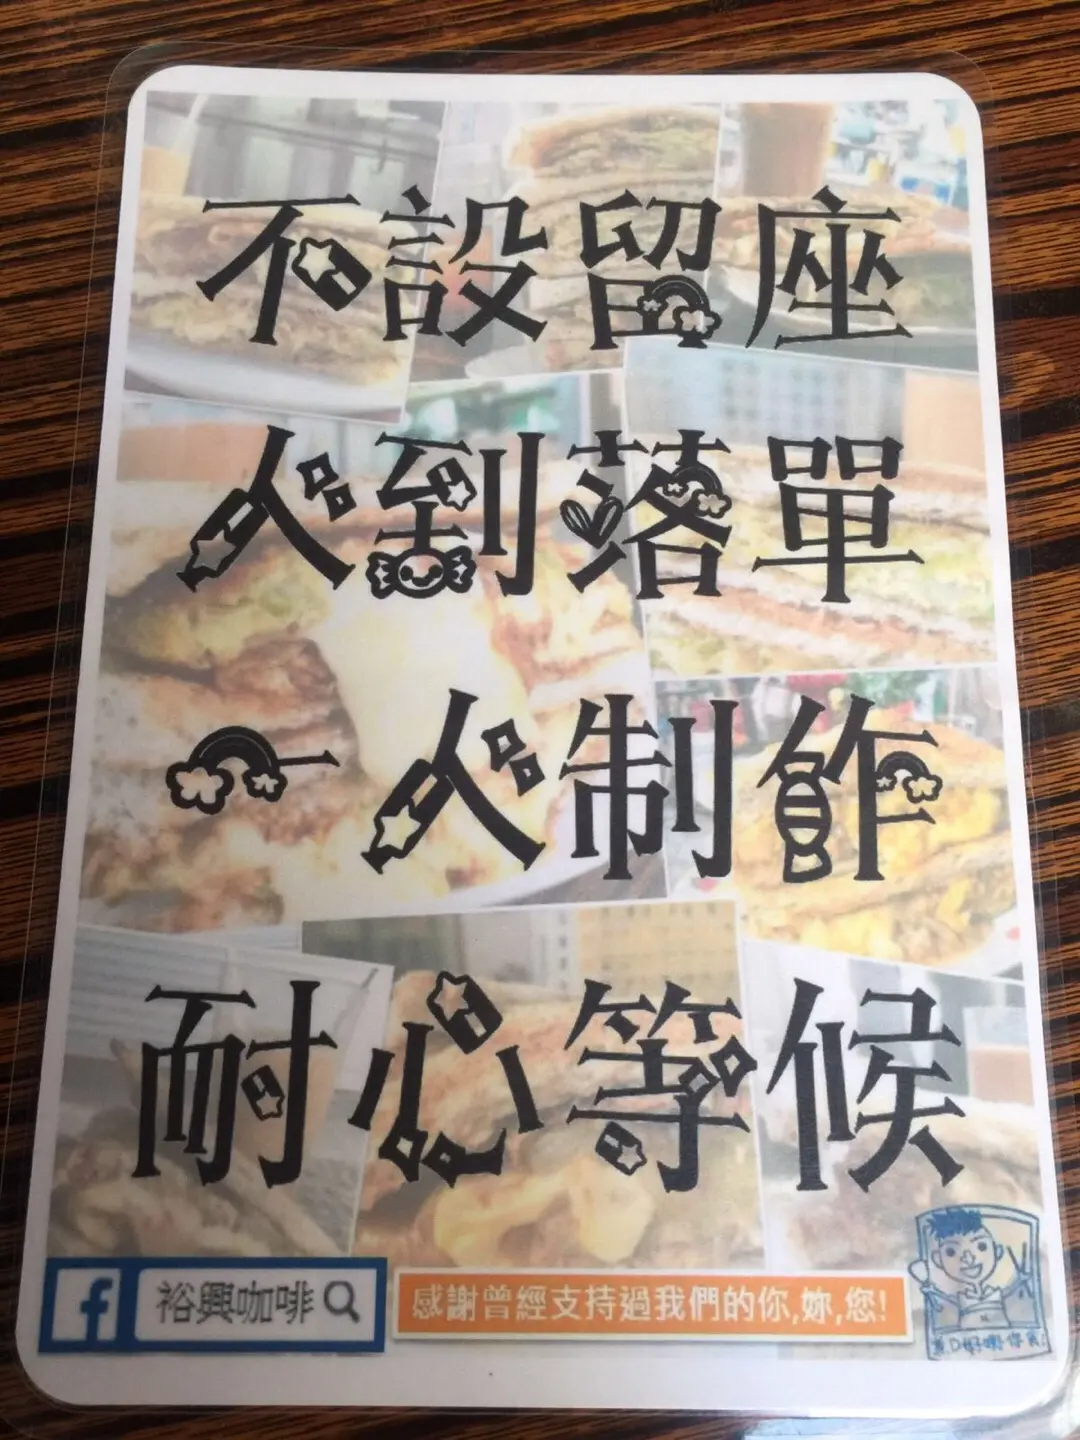 不設留座
人到落單
一人制作
耐心等候
裕興咖啡
感謝曾經支持過我們的你,妳,您!